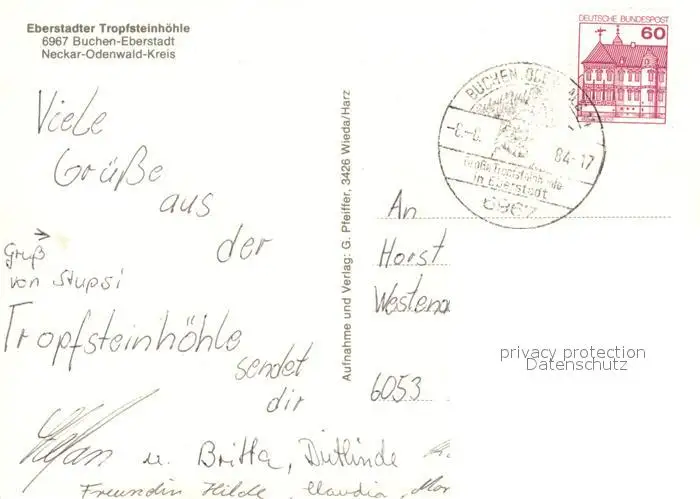 Eberstadter Tropfsteinhöhle
6967 Buchen-Eberstadt
Neckar-Odenwald-Kreis
DEUTSCHE BUNDESPOST
60
BUCHEN
84-17
in Eberstadt
6967
Viele
Grüße
aus
der
Gruß
von Stupsi
Tropfsteinhöhle
sendet
dir
Stefan u. Britta, Dietlinde
Freundin Hilde, Claudia,
Aufnahme und Verlag: G. Pfeiffer, 3426 Wieda/Harz
An
Horst
6053
privacy protection
Datenschutz